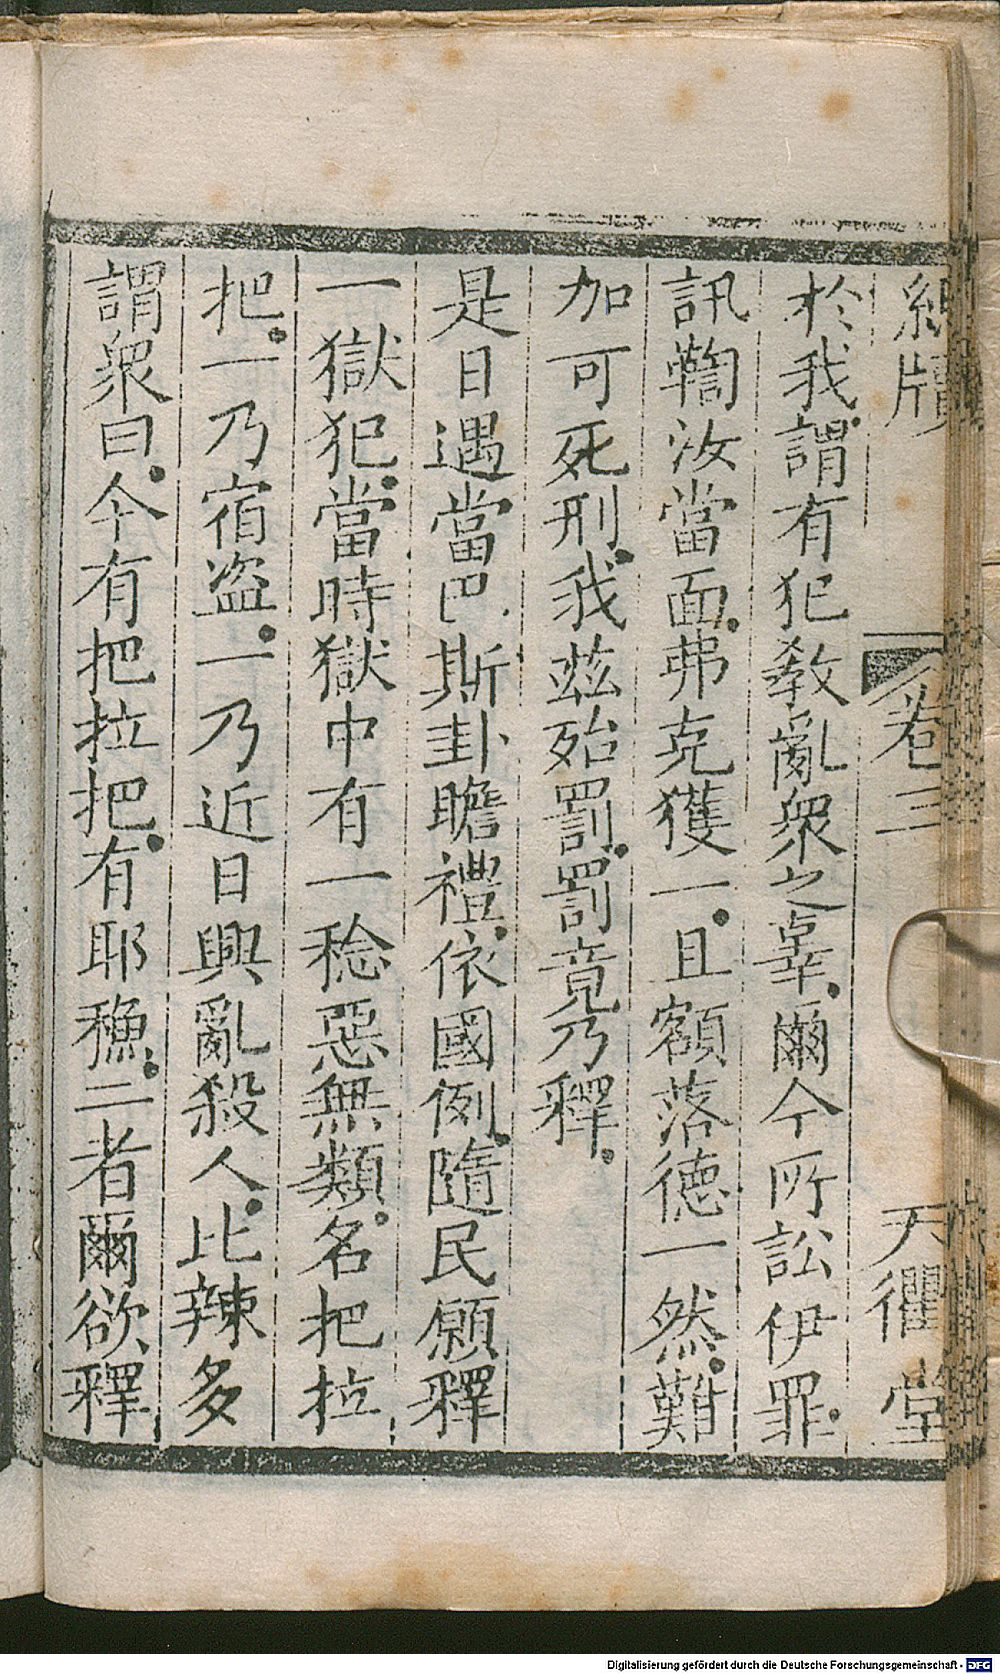 於我謂有犯教亂衆之辜爾今所訟伊罪
訊鞫汝當面弗克獲一且額落德一然難
加可死刑我兹殆罰罰竟乃釋
是日遇當巴斯卦瞻禮依國例隨民願釋
一獄犯當時獄中有一稔惡無類名把拉
把一乃宿盗一乃近日興亂殺人比辣多
謂衆曰今有把拉把有耶穌二者爾欲釋
卷三
天衢堂
Digitalisierung gefördert durch die Deutsche Forschungsgemeinschaft - DFG